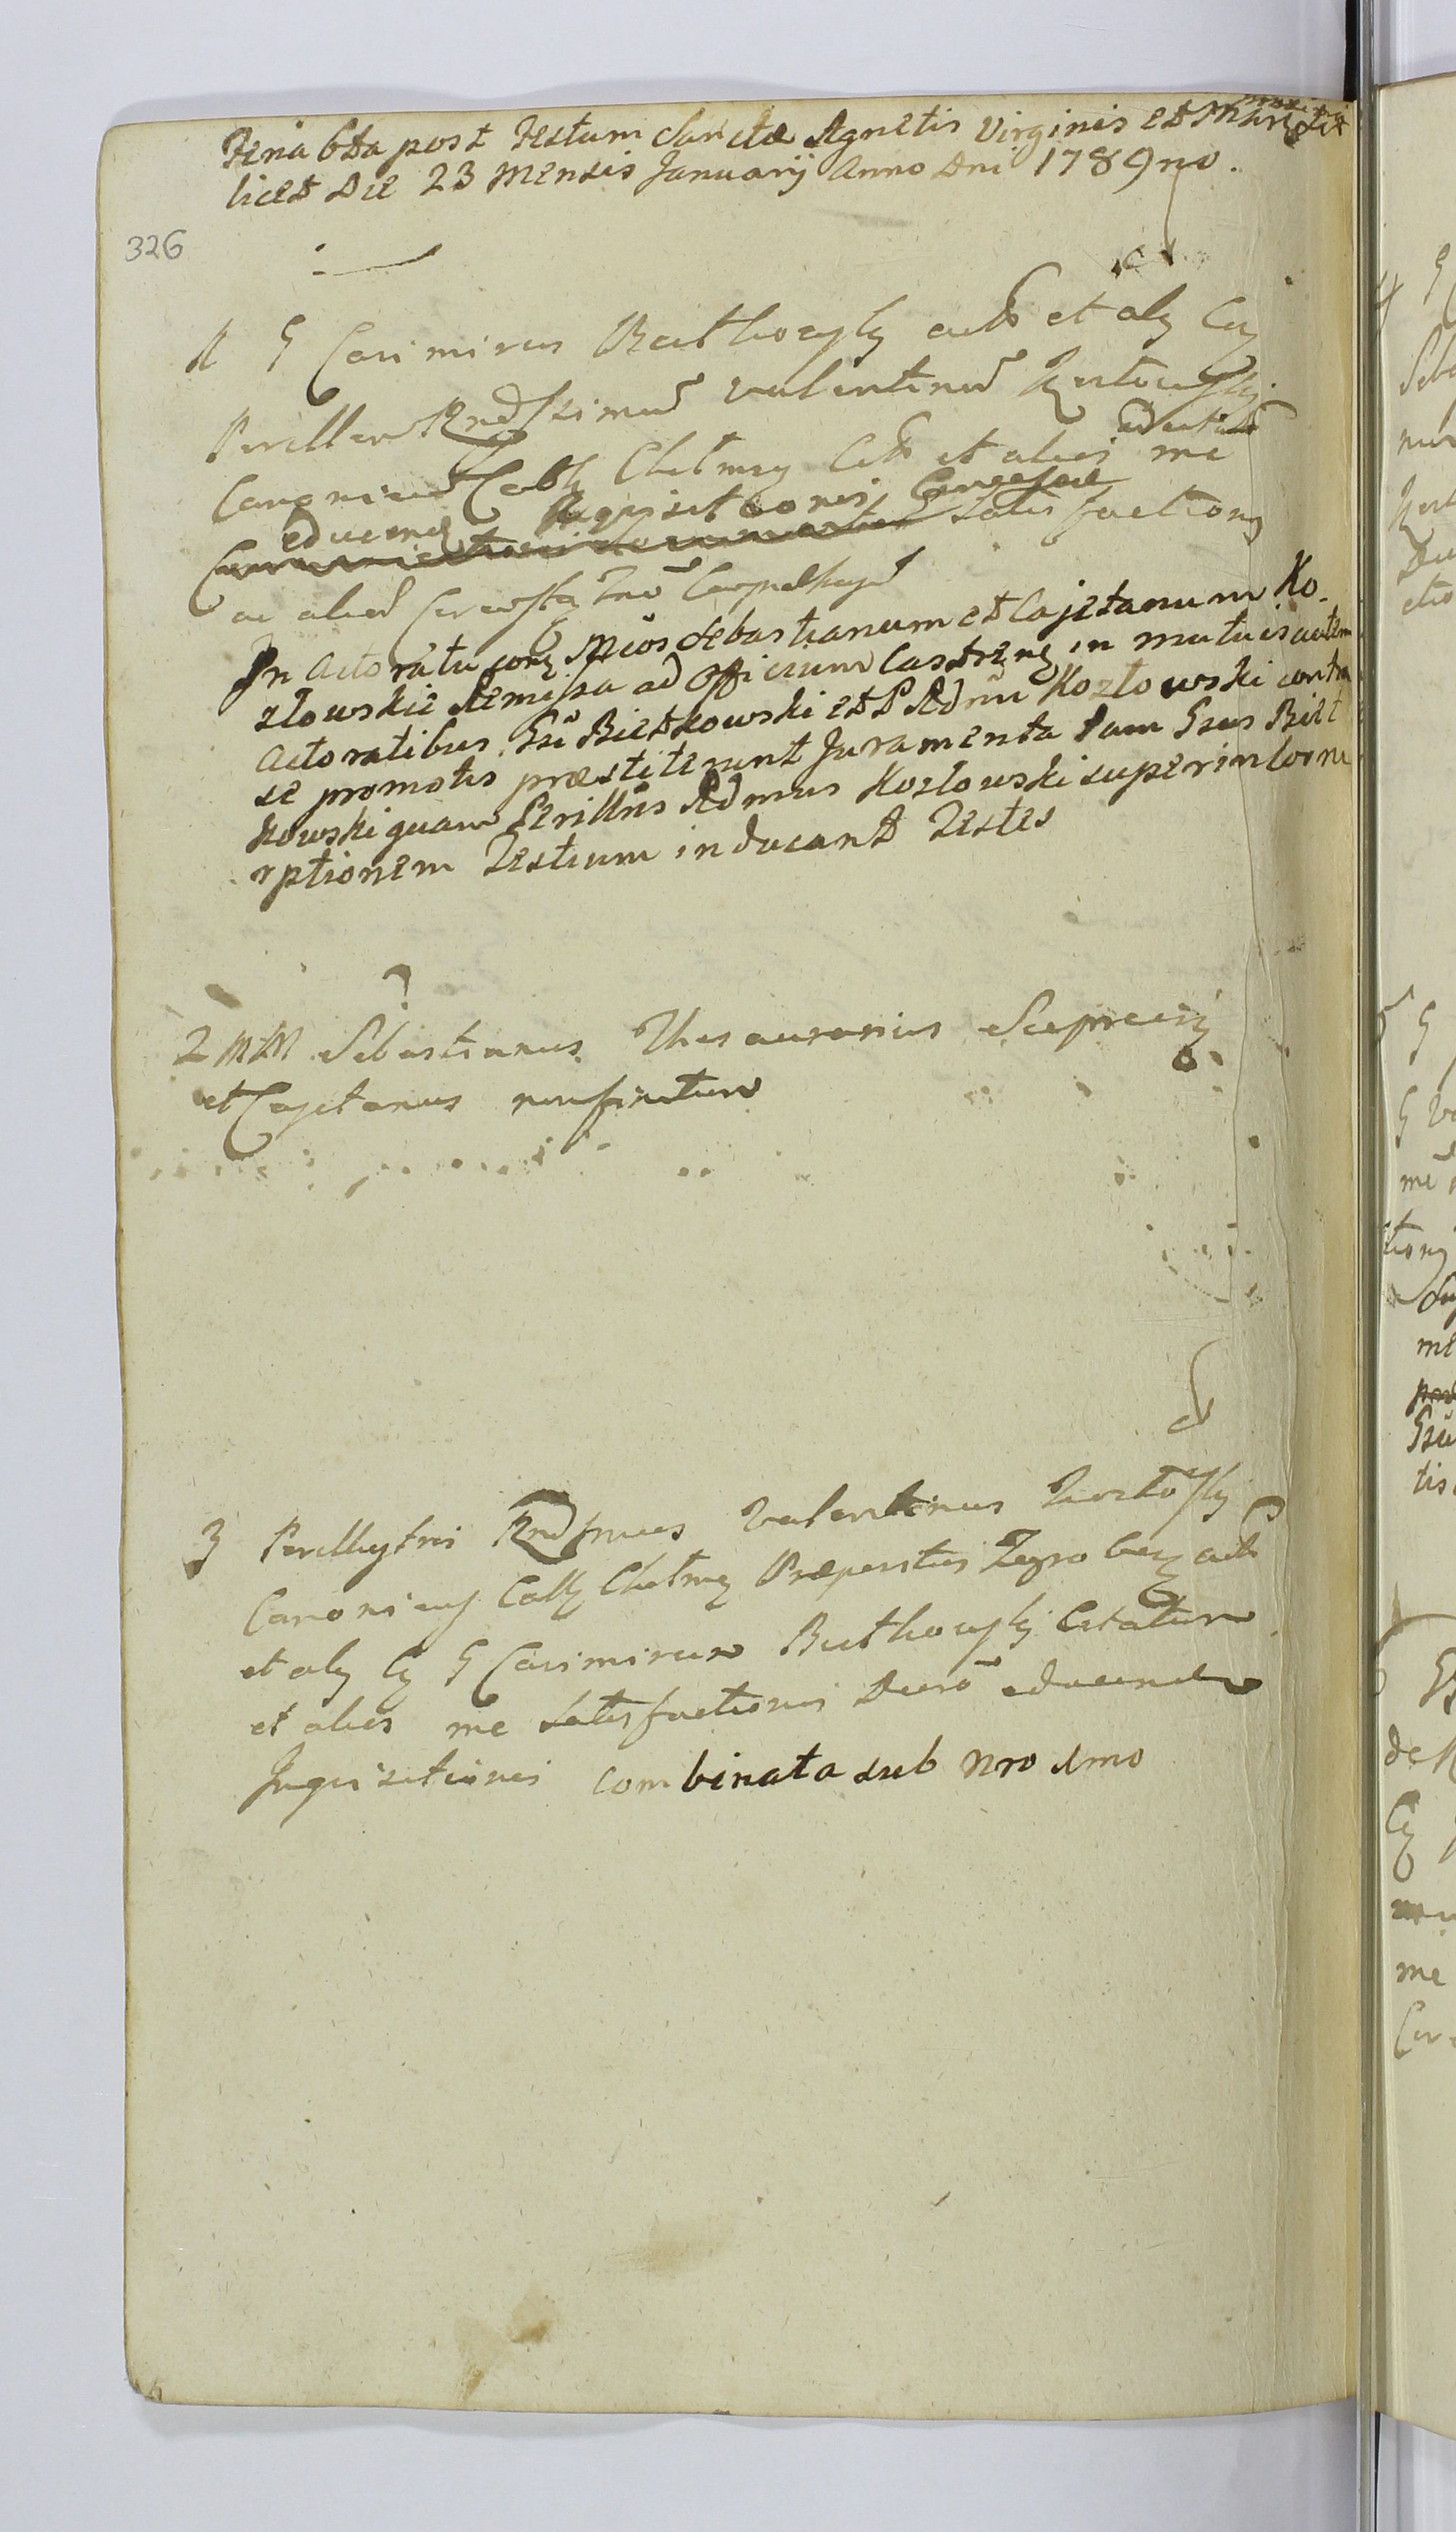 Feria 6ta post Festum Sanctæ Agnetis Virginis et Martyris
licet Die 23 Mensis January Anno Dni 1789no.
326
1 G Casimirus Bietkowsky et aly Cy
Perillem Rndssimum Valentinum Kozłowsky
Canonicum Chelmen et alios me
educend Inquisitiones Satisfactions
ac alias
In Actoratu cont Mcos Sebastianum et Cajetanum Ko-
złowskie Remissa ad Officium Castren in mutuis autem
Actoratibus Gsi Bietkowski et P Rdmi Kozłowski contra
se promotis præstiterunt Juramenta tam Gsus Biet
kowski quam Perillris Rdmus Kozłowski super incorru
rptionem Testium inducant Testes
2 MM Sebastianus Thesaurarius
et Cajetanus
3 Perillustris Rndssmus Valentinus Kozłowsky
Canonicus Chelmen Præpositus
et aly Cy G Casimirum Bietkowsky Citatum
et alios me Satisfactionis Decro educend
Inquisitiones combinata sub Nro 1mo